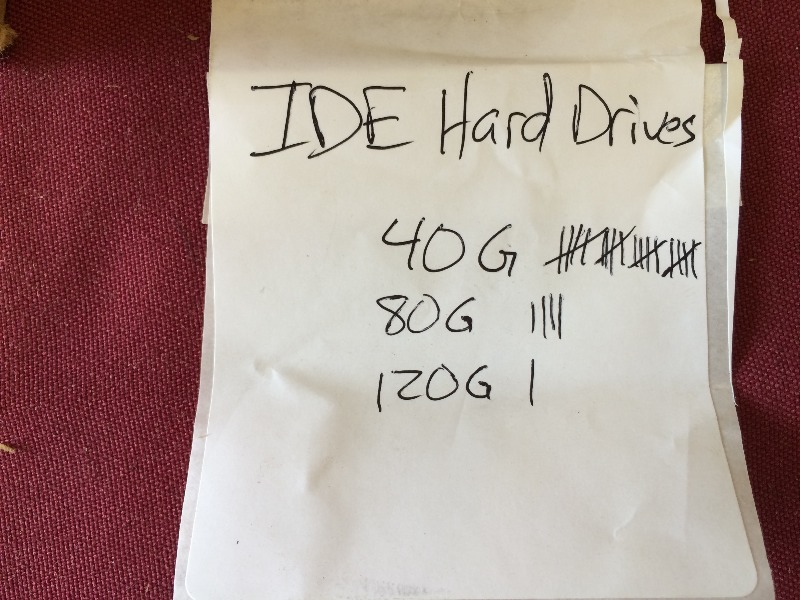 IDE Hard Drives
40G 𝍸 𝍸 𝍸 𝍸
80G ||||
120G |